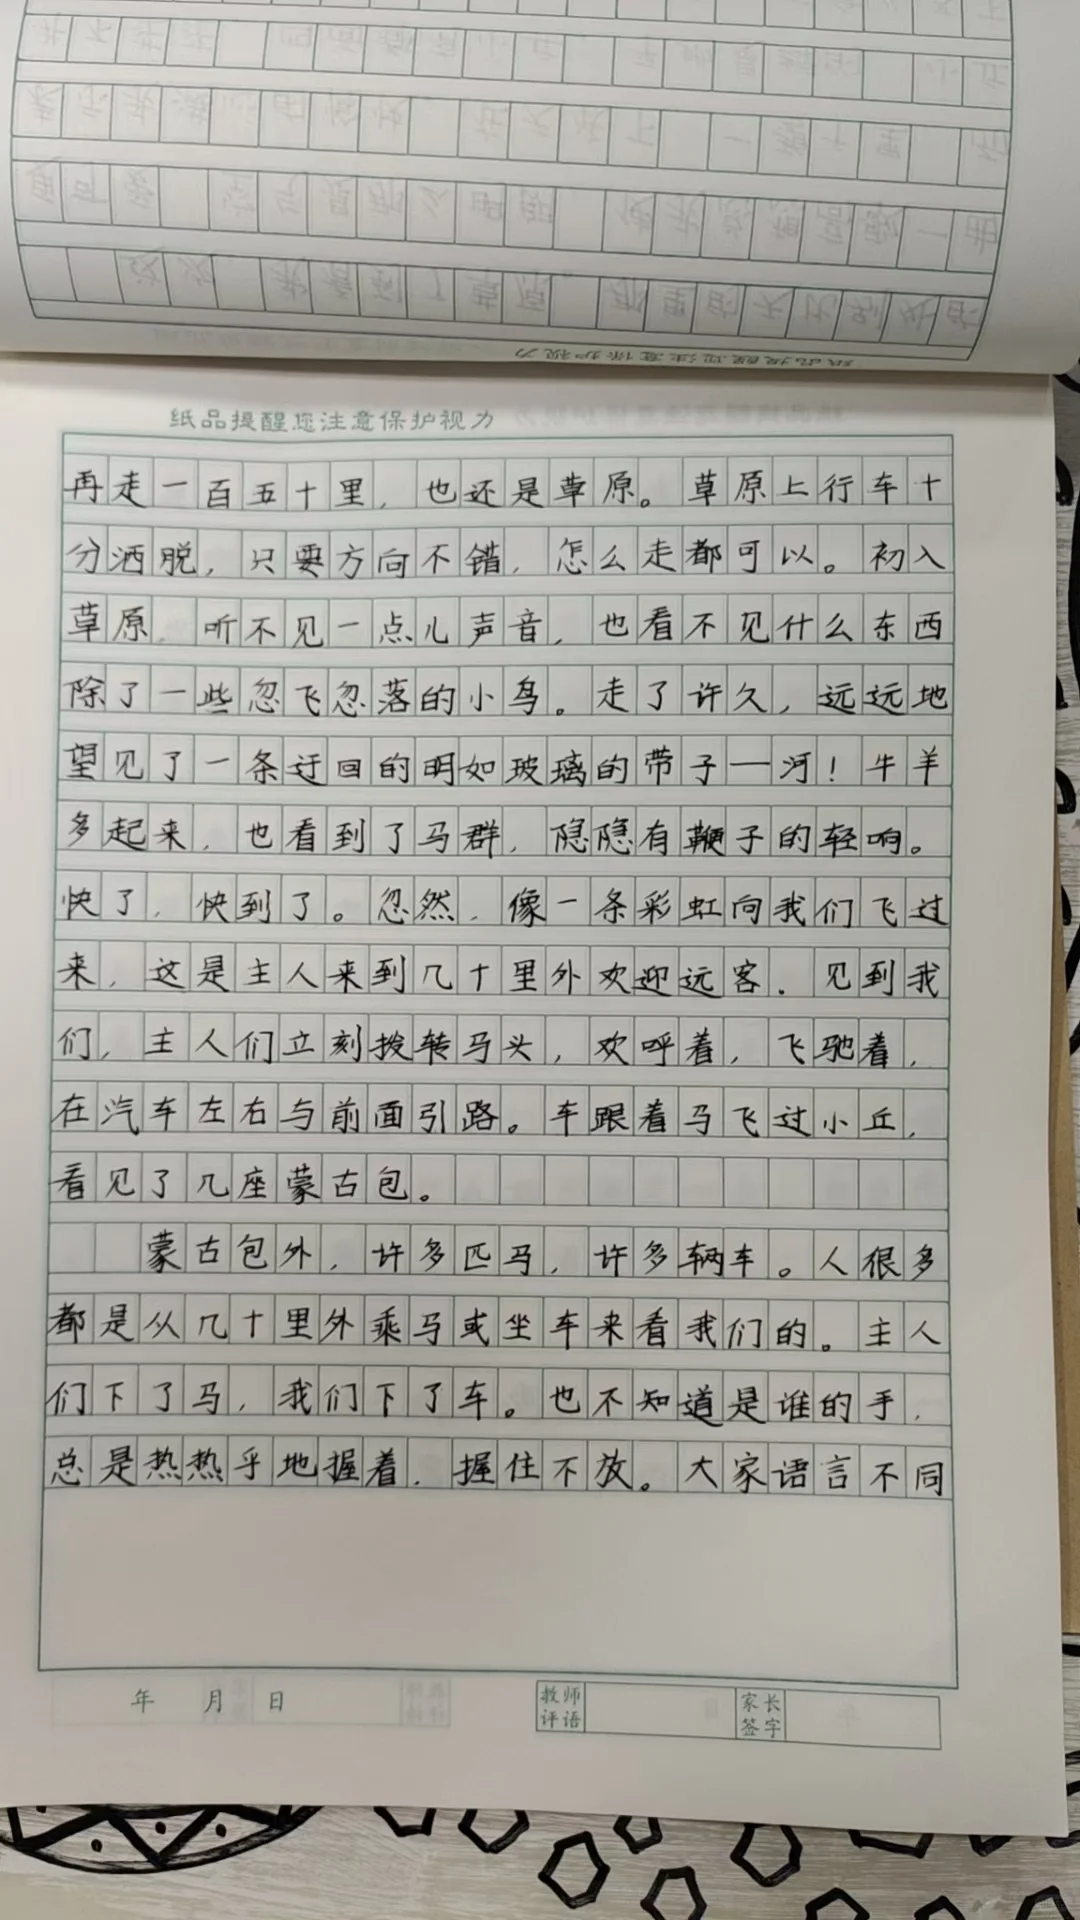 纸品提醒您注意保护视力
再走一百五十里，也还是草原。草原上行车十
分洒脱，只要方向不错，怎么走都可以。初入
草原，听不见一点儿声音，也看不见什么东西
除了一些忽飞忽落的小鸟。走了许久，远远地
望见了一条迂回的明如玻璃的带子—河！牛羊
多起来，也看到了马群，隐隐有鞭子的轻响。
快了，快到了。忽然，像一条彩虹向我们飞过
来，这是主人来到几十里外欢迎远客．见到我
们，主人们立刻拨转马头，欢呼着，飞驰着，
在汽车左右与前面引路。车跟着马飞过小丘，
看见了几座蒙古包。
蒙古包外，许多匹马，许多辆车。人很多
都是从几十里外乘马或坐车来看我们的。主人
们下了马，我们下了车。也不知道是谁的手，
总是热热乎地握着，握住不放。大家语言不同
年 月 日
教师评语
家长签字